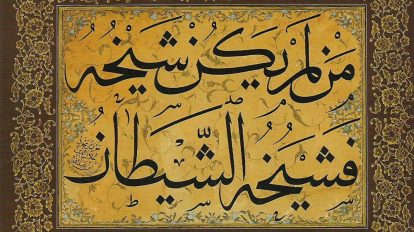 مَن لم يكن شيخه
فَشيخه الشّيطان